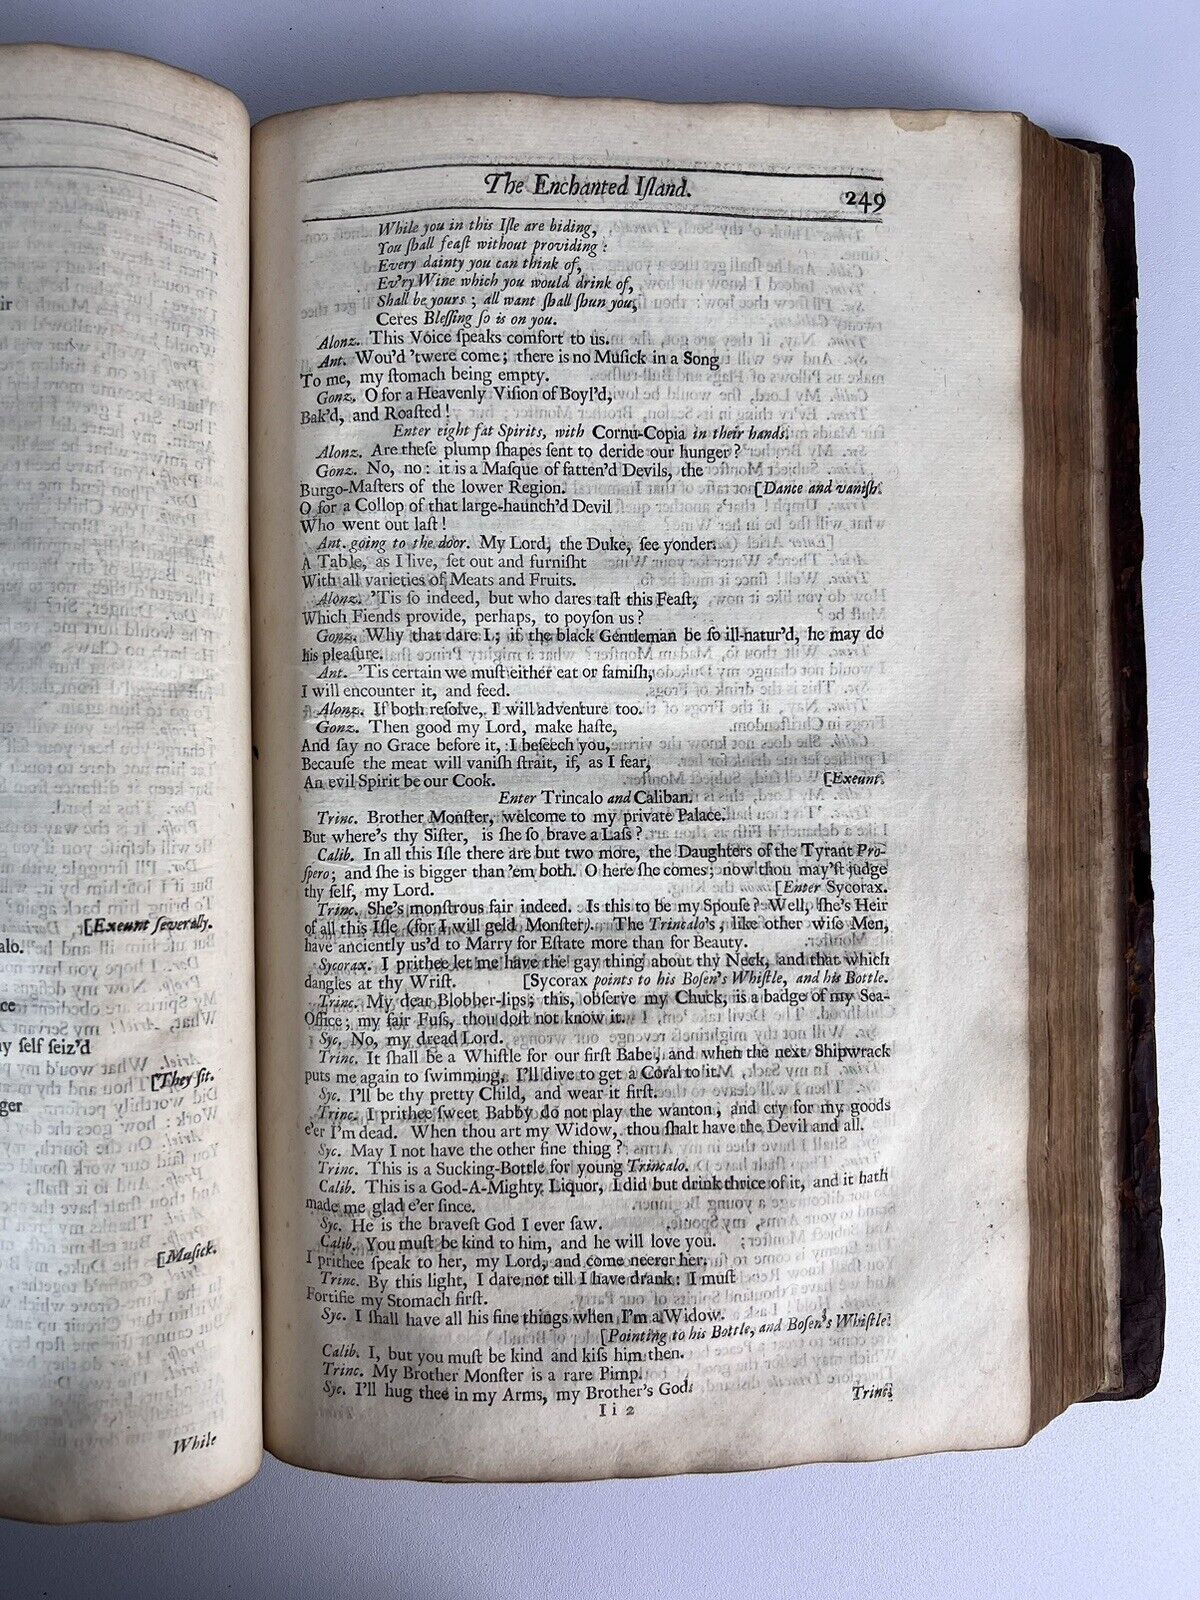 ir
[Exeunt severally.
alo.
ce
y self seiz'd
[They sit.
ger
[Musick.
While
The Enchanted Iſland.
249
While you in this Iſle are biding,
You ſhall feaſt without providing:
Every dainty you can think of,
Ev'ry Wine which you would drink of,
Shall be yours; all want ſhall ſhun you,
Ceres Bleſſing ſo is on you.
Alonz. This Voice ſpeaks comfort to us.
Ant. Wou'd 'twere come; there is no Muſick in a Song
To me, my ſtomach being empty.
Gonz. O for a Heavenly Viſion of Boyl'd,
Bak'd, and Roaſted!
Enter eight fat Spirits, with Cornu-Copia in their hands.
Alonz. Are theſe plump ſhapes ſent to deride our hunger?
Gonz. No, no: it is a Maſque of fatten'd Devils, the
Burgo-Maſters of the lower Region. [Dance and vaniſh.
O for a Collop of that large-haunch'd Devil
Who went out laſt!
Ant. going to the door. My Lord, the Duke, ſee yonder.
A Table, as I live, ſet out and furniſht
With all varieties of Meats and Fruits.
Alonz. 'Tis ſo indeed, but who dares taſt this Feaſt,
Which Fiends provide, perhaps, to poyſon us?
Gonz. Why that dare I; if the black Gentleman be ſo ill-natur'd, he may do
his pleaſure.
Ant. 'Tis certain we muſt either eat or famiſh,
I will encounter it, and feed.
Alonz. If both reſolve, I will adventure too.
Gonz. Then good my Lord, make haſte,
And ſay no Grace before it, I beſeech you,
Becauſe the meat will vaniſh ſtrait, if, as I fear,
An evil Spirit be our Cook. [Exeunt.
Enter Trincalo and Caliban.
Trinc. Brother Monſter, welcome to my private Palace.
But where's thy Siſter, is ſhe ſo brave a Laſs?
Calib. In all this Iſle there are but two more, the Daughters of the Tyrant Pro-
ſpero; and ſhe is bigger than 'em both. O here ſhe comes; now thou may'ſt judge
thy ſelf, my Lord. [Enter Sycorax.
Trinc. She's monſtrous fair indeed. Is this to be my Spouſe? Well, ſhe's Heir
of all this Iſle (for I will geld Monſter). The Trincalo's, like other wiſe Men,
have anciently us'd to Marry for Eſtate more than for Beauty.
Sycorax. I prithee let me have the gay thing about thy Neck, and that which
dangles at thy Wriſt. [Sycorax points to his Boſen's Whiſtle, and his Bottle.
Trinc. My dear Blobber-lips; this, obſerve my Chuck, is a badge of my Sea-
Office; my fair Fuſs, thou doſt not know it.
Syc. No, my dread Lord.
Trinc. It ſhall be a Whiſtle for our firſt Babe, and when the next Shipwrack
puts me again to ſwimming, I'll dive to get a Coral to it.
Syc. I'll be thy pretty Child, and wear it firſt.
Trinc. I prithee ſweet Babby do not play the wanton, and cry for my goods
e'er I'm dead. When thou art my Widow, thou ſhalt have the Devil and all.
Syc. May I not have the other fine thing?
Trinc. This is a Sucking-Bottle for young Trincalo.
Calib. This is a God-A-Mighty Liquor, I did but drink thrice of it, and it hath
made me glad e'er ſince.
Syc. He is the braveſt God I ever ſaw.
Calib. You muſt be kind to him, and he will love you.
I prithee ſpeak to her, my Lord, and come neerer her.
Trinc. By this light, I dare not till I have drank: I muſt
Fortifie my Stomach firſt.
Syc. I ſhall have all his fine things when I'm a Widow.
[Pointing to his Bottle, and Boſen's Whiſtle.
Calib. I, but you muſt be kind and kiſs him then.
Trinc. My Brother Monſter is a rare Pimp.
Syc. I'll hug thee in my Arms, my Brother's God.
I i 2
Trinc.